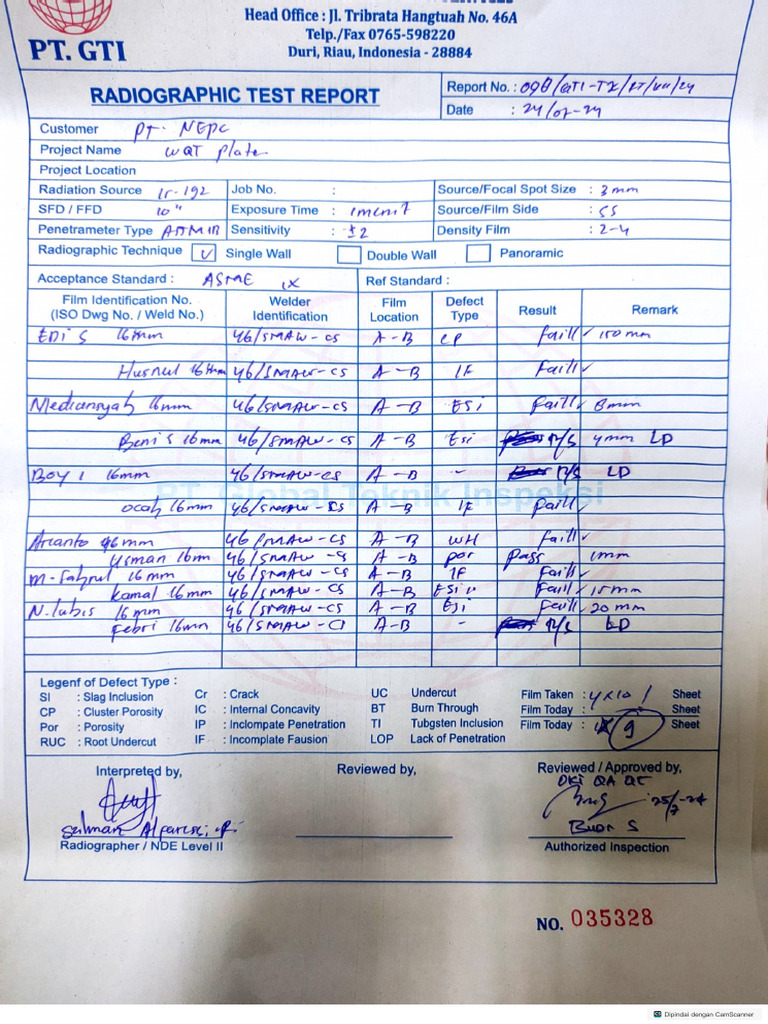 Head Office : Jl. Tribrata Hangtuah No. 46A
Telp./Fax 0765-598220
Duri, Riau, Indonesia - 28884
PT. GTI
RADIOGRAPHIC TEST REPORT
Report No. :
Date : 24/07-24
Customer PT. NEPC
Project Name WQT Plate
Project Location
Radiation Source Ir-192 Job No. : Source/Focal Spot Size : 3 mm
SFD / FFD 10" Exposure Time : 1 menit Source/Film Side :
Penetrameter Type ASTM 1B Sensitivity : ±2 Density Film : 2-4
Radiographic Technique ✓ Single Wall Double Wall Panoramic
Acceptance Standard : ASME IX Ref Standard :
Film Identification No. (ISO Dwg No. / Weld No.) Welder Identification Film Location Defect Type Result Remark
EDI S 16mm 46/SMAW-CS A-B CP Faill ✓ 150 mm
Husnul 16mm 46/SMAW-CS A-B IF Faill ✓
Mediansyah 16mm 46/SMAW-CS A-B ESi Faill 8mm
Beni S 16mm 46/SMAW-CS A-B ESi R/S 4mm LD
Boy 1 16mm 46/SMAW-CS A-B - R/S LD
ocah 16mm 46/SMAW-CS A-B IF Faill ✓
PT. Global Teknik Inspeksi
Arianto 16mm 46/SMAW-CS A-B WH Faill ✓
Usman 16mm 46/SMAW-CS A-B Por Pass 1mm
M. Sahrul 16mm 46/SMAW-CS A-B IF Faill ✓
Kamal 16mm 46/SMAW-CS A-B ESi Faill ✓ 15mm
N. lubis 16mm 46/SMAW-CS A-B ESi Faill 20mm
Febri 16mm 46/SMAW-CS A-B - R/S LD
Legenf of Defect Type :
SI : Slag Inclusion Cr : Crack UC Undercut Film Taken : 4x10 Sheet
CP : Cluster Porosity IC : Internal Concavity BT Burn Through Film Today : Sheet
Por : Porosity IP : Inclompate Penetration TI Tubgsten Inclusion Film Today : 9 Sheet
RUC : Root Undercut IF : Incomplate Fausion LOP Lack of Penetration
Interpreted by, Reviewed by, Reviewed / Approved by,
OKI QA QC
25/7-24
Salman Alfarisi
Budi S
Radiographer / NDE Level II Authorized Inspection
NO. 035328
Dipindai dengan CamScanner